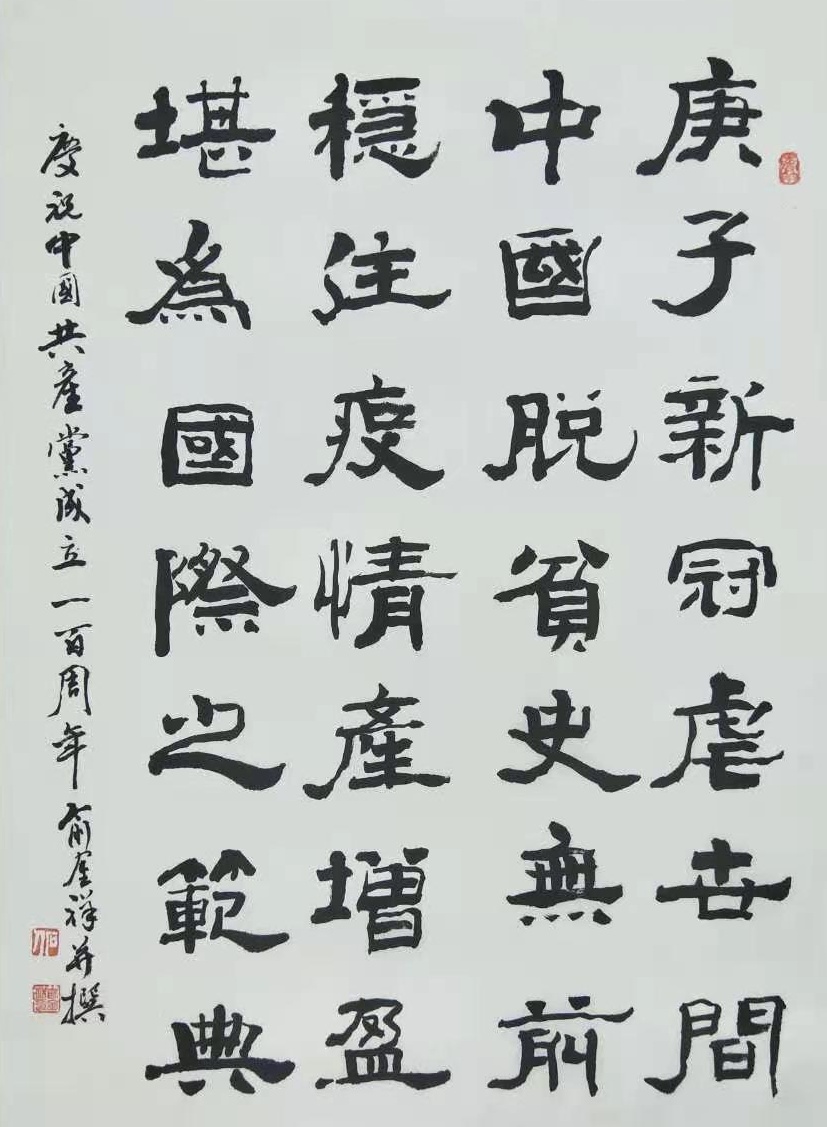 庚子新冠虐世間
中國脫貧史無前
穩住疫情產增盈
堪為國際之範典
慶祝中國共產黨成立一百周年 俞奎祥并撰